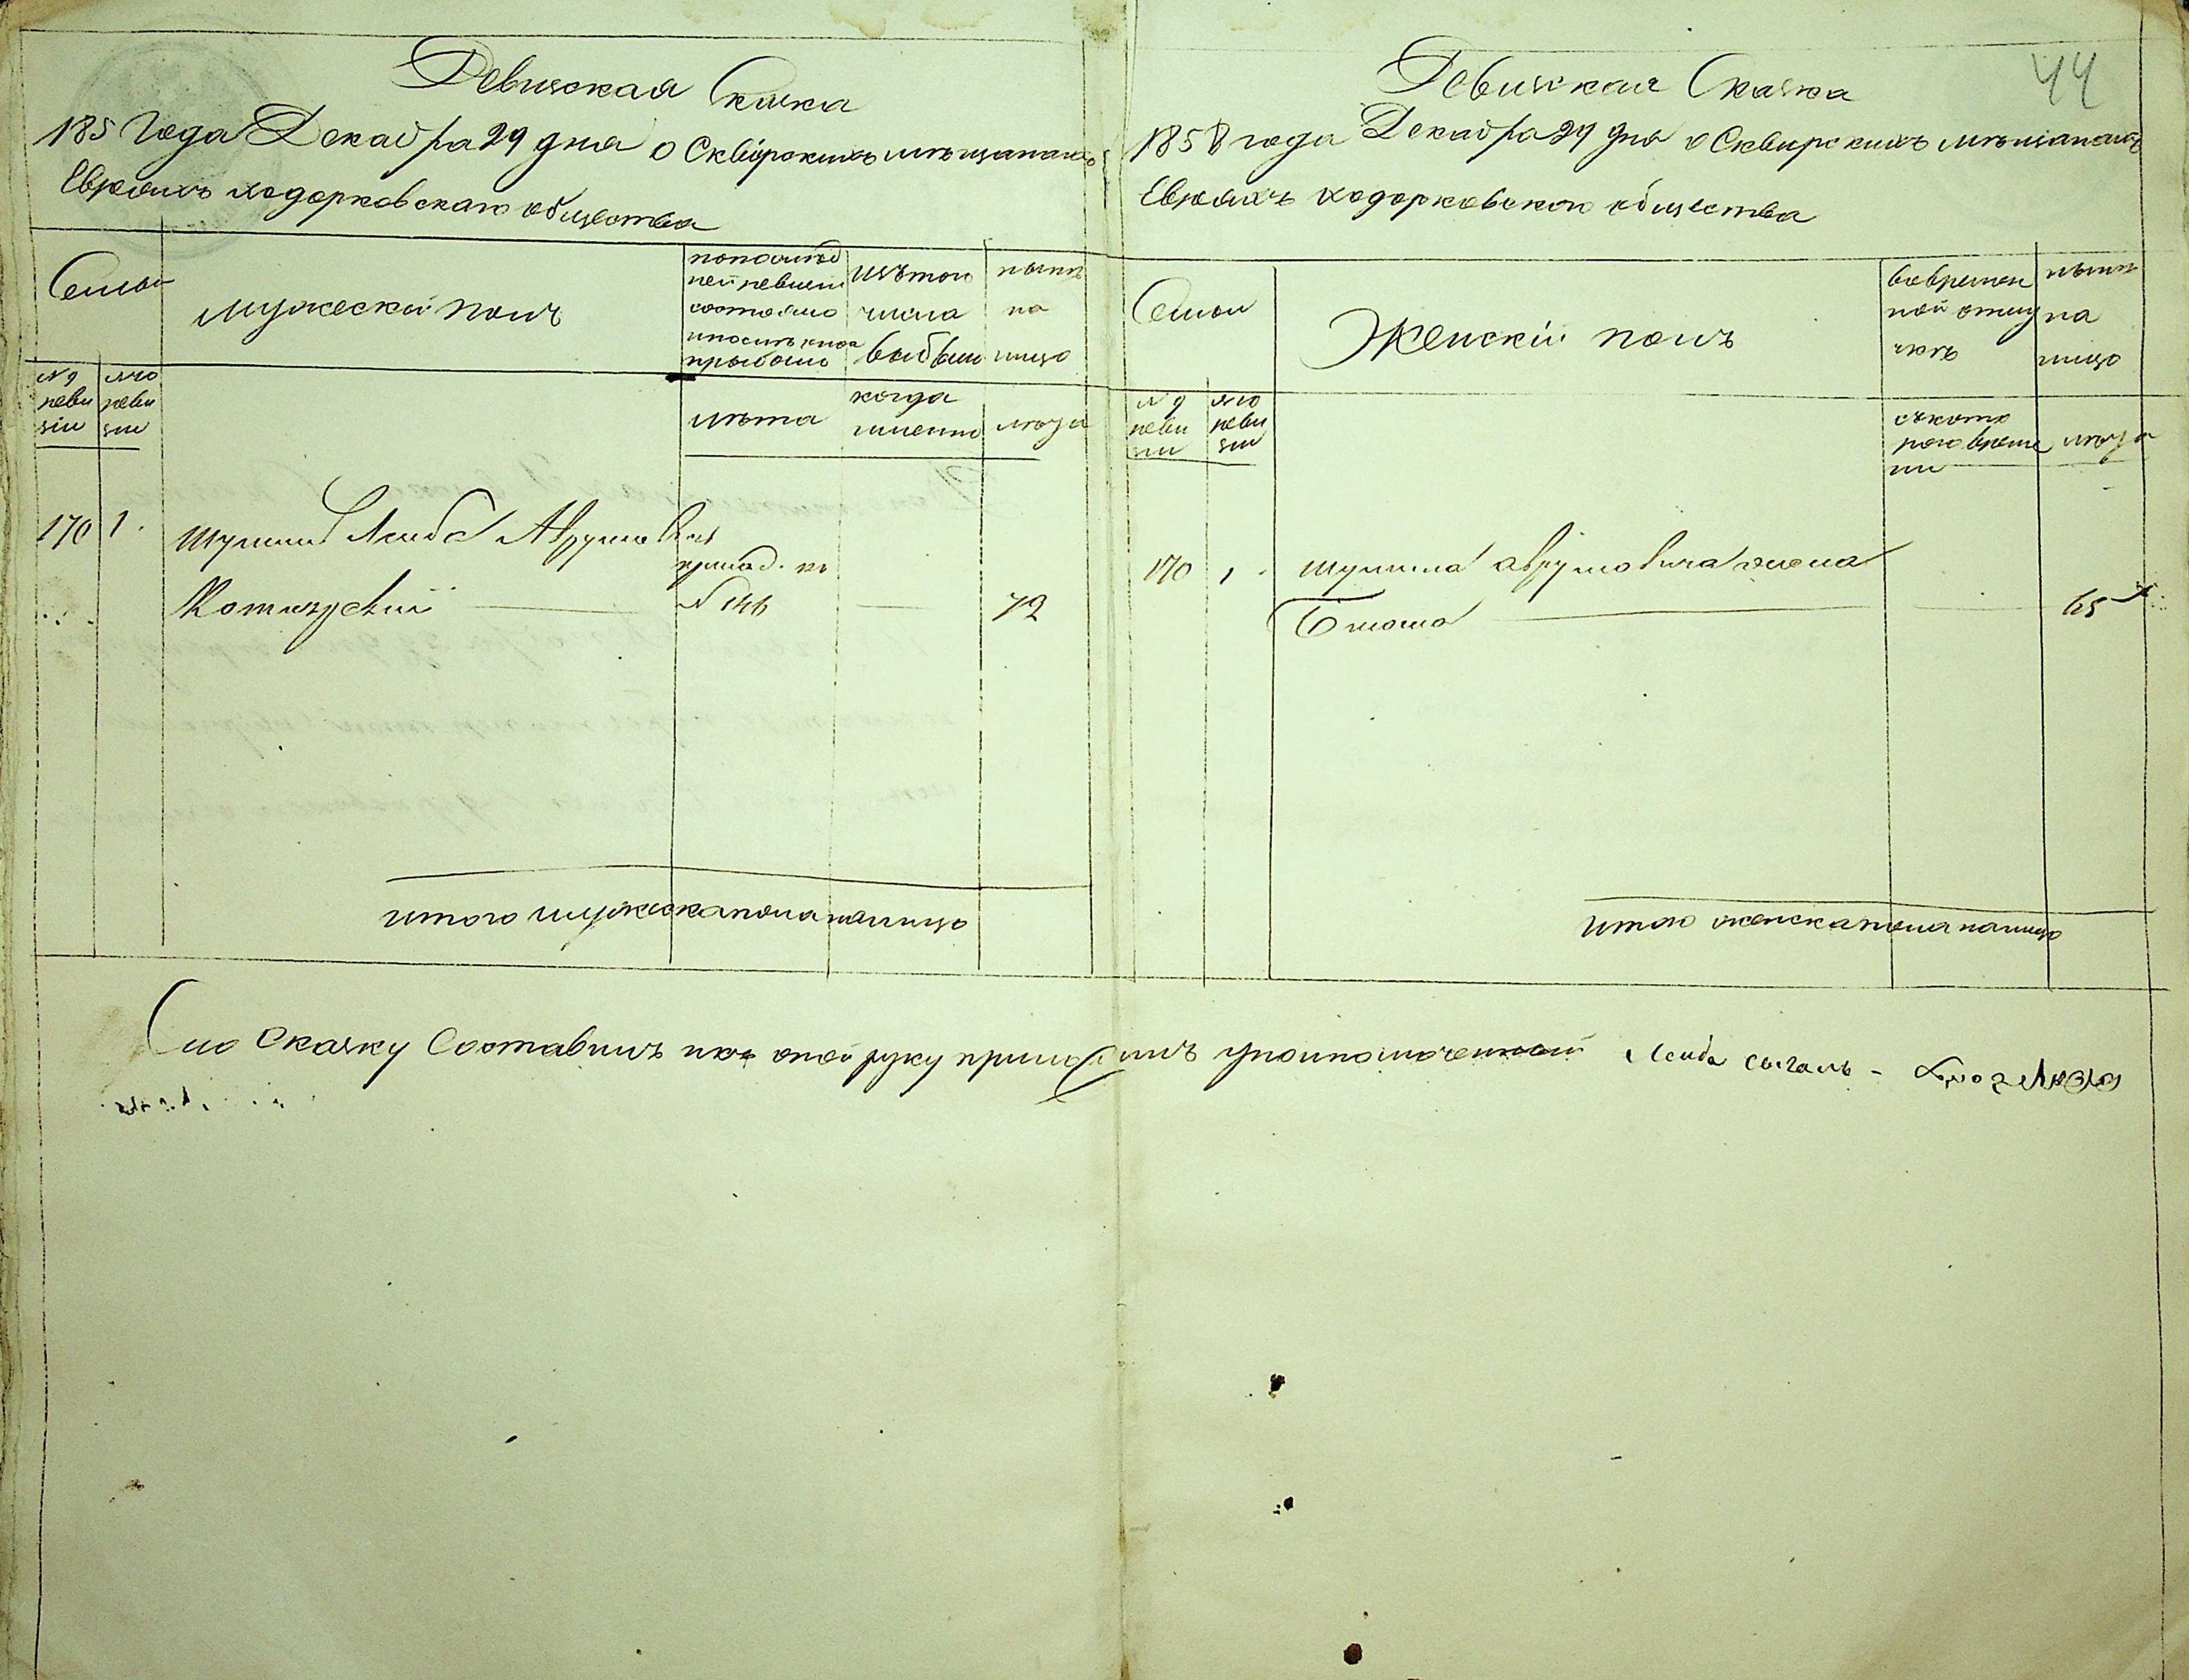 Ревизская Скаска
185 Года Декабря 29 дня о Сквирскихъ мѣщанахъ
Евреяхъ ходорковскаго общества
Семьи
мужеский полъ
по послѣд
ней ревизіи
состояло
и послѣ того
прибыло
изъ того
числа
выбыли
нынѣ
на
лицо
№ 9
реви
зіи
№ 10
реви
зіи
лѣта
когда
именно
лѣта
170 1
Шулим Лейба Аврумов
причод. къ
Котлярский № 146 72
итого мужеска пола налицо
44
Ревизская Сказка
1858 года Декабря 29 дня о Сквирскихъ мѣщанахъ
Евреяхъ ходорковского общества
Семьи
Женскій полъ
во времен
ной отлу
чкѣ
нынѣ
на
лицо
№ 9
реви
зіи
№ 10
реви
зіи
съ кото
рого време
ни
лѣта
170 1 Шулима Аврумовича жена
65
итого женска пола налицо
Сию Сказку Составилъ и къ оной руку приложилъ уполномоченный Лейба сыгалъ -